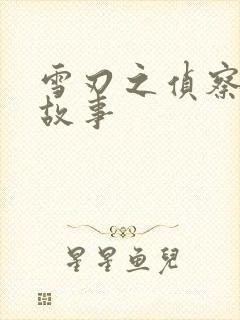 雪刃之偵察
故事
星星鱼兒